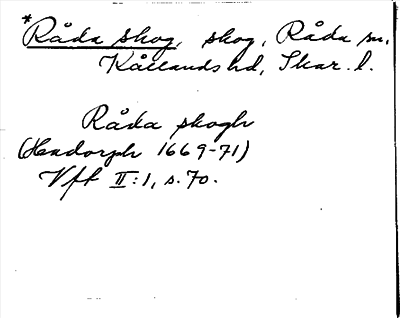 *Råda skog, skog, Råda sn,
Kållands hd, Skar. l.
Råda skogh
(Hadorph 1669-71)
Vft II:1, s. 70.